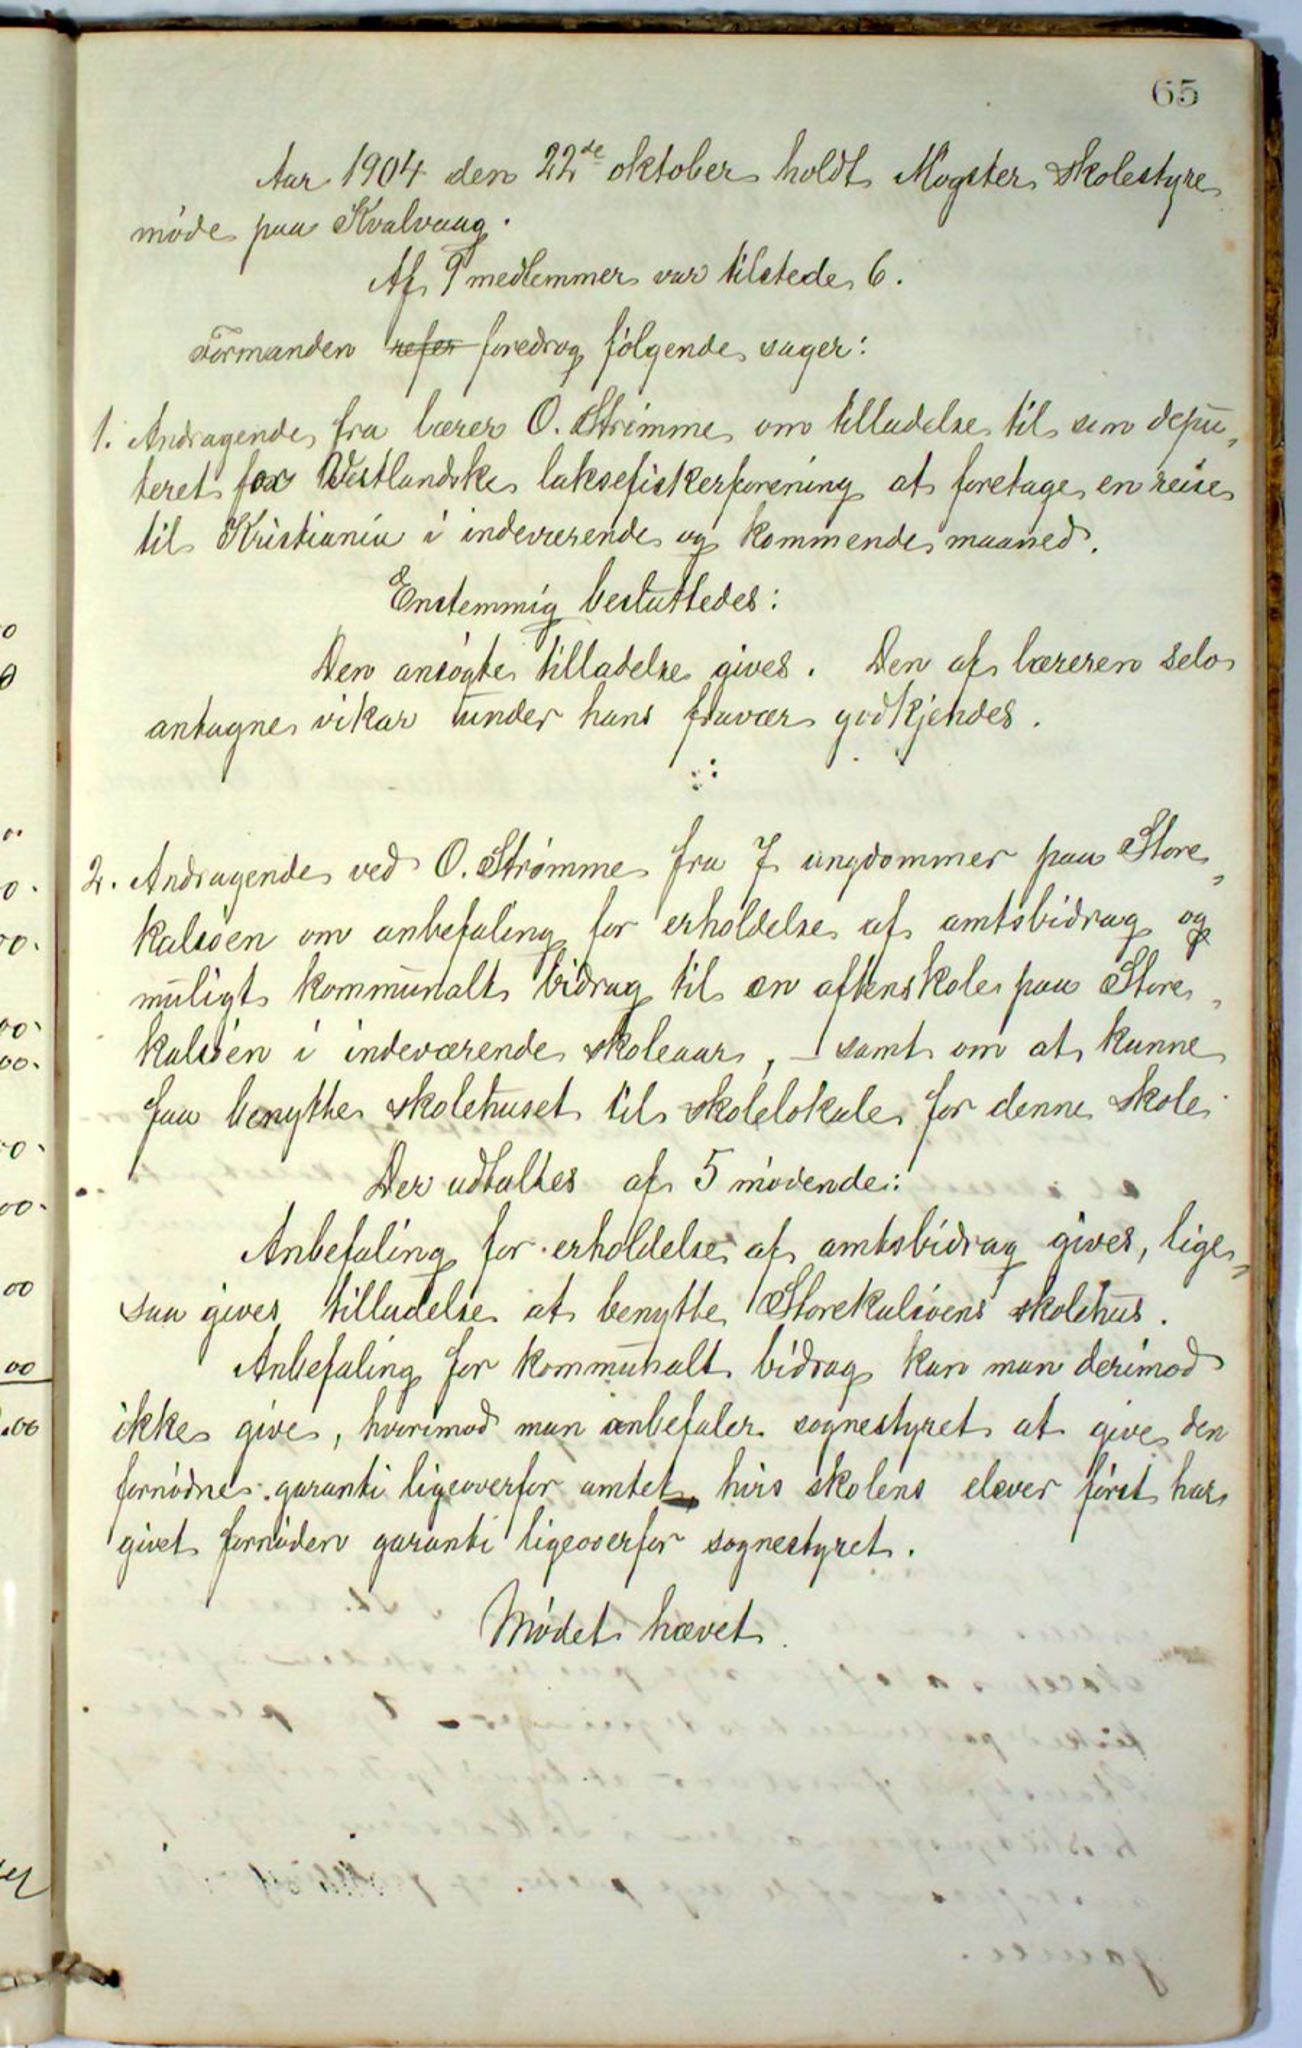 65
Aar 1904 den 22de oktober holdt Møgster skolestyre
møde paa Kvalvaag.
Af 9 medlemmer var tilstede 6.
Formanden refer foredrog følgende sager:
1. Andragende fra lærer O. Strømme om tilladelse til som depu-
teret for Vestlandske laksefiskerforening at foretage en reise
til Kristiania i indeværende og kommende maaned.
Enstemmig besluttedes:
Den ansøgte tilladelse gives. Den af læreren selv
antagne vikar under hans fravær godkjendes.
2. Andragende ved O. Strømme fra 7 ungdommer paa Store-
kalsøen om anbefaling for erholdelse af amtsbidrag og
muligt kommunalt bidrag til en aftenskole paa Store-
kalsøen i indeværende skoleaar, – samt om at kunne
faa benytte skolehuset til skolelokale for denne skole
Der udtaltes af 5 mødende:
Anbefaling for erholdelse af amtsbidrag gives, lige-
saa gives tilladelse at benytte Storekalsøens skolehus.
Anbefaling for kommunalt bidrag kan man derimod
ikke give, hvorimod man anbefaler sognestyret at give den
fornødne garanti ligeoverfor amtet, hvis skolens elever først har
givet fornøden garanti ligeoverfor sognestyret.
Mødet hævet.